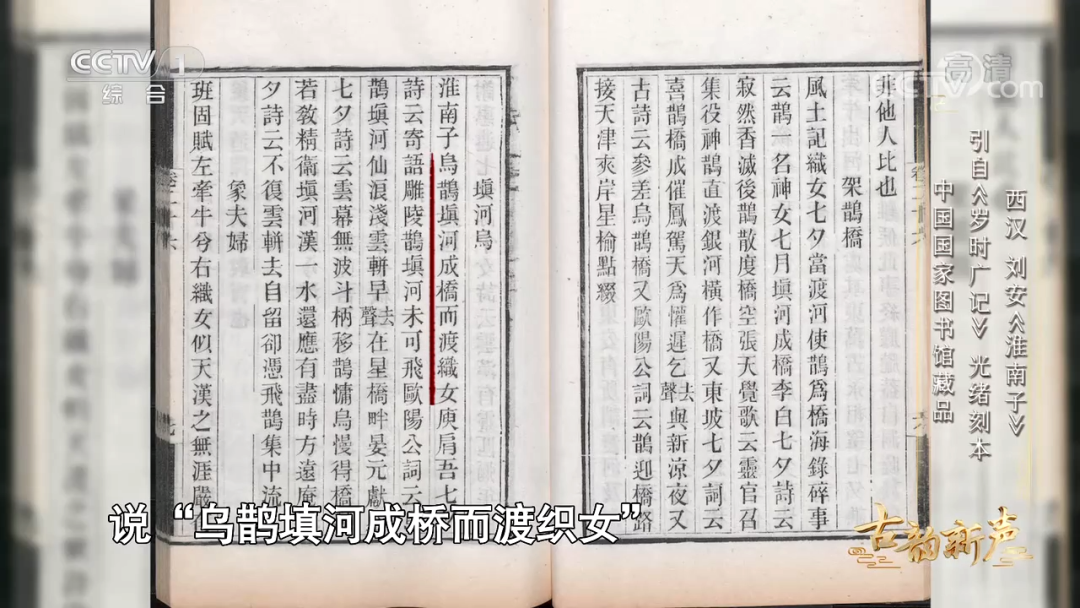 CCTV 1
综合
高清
CCTV.com
西汉 刘安《淮南子》
引自《岁时广记》光绪刻本
中国国家图书馆藏品
非他人比也
架鵲橋
風土記織女七夕當渡河使鵲爲橋海錄碎事
云鵲一名神女七月填河成橋李白七夕詩云
寂然香滅後鵲散度橋空張天覺歌云靈官召
集役神鵲直渡銀河橫作橋又東坡七夕詞云
喜鵲橋成催鳳駕天爲懽遲乞去聲與新凉夜又
古詩云參差烏鵲橋又歐陽公詞云鵲迎橋路
接天津夾岸星榆點綴
填河烏
淮南子烏鵲塡河成橋而渡織女庾肩吾七
詩云寄語雕陵鵲塡河未可飛歐陽公詞云
鵲塡河仙浪淺雲軿早去聲在星橋畔晏元獻
七夕詩云雲幕無波斗柄移鵲慵烏慢得橋
若教精衛塡河漢一水還應有盡時方遠庵
夕詩云不復雲軿去自留卻憑飛鵲集中流
象夫婦
班固賦左牽牛兮右織女似天漢之無涯嚴
说“乌鹊填河成桥而渡织女”
古韵新声